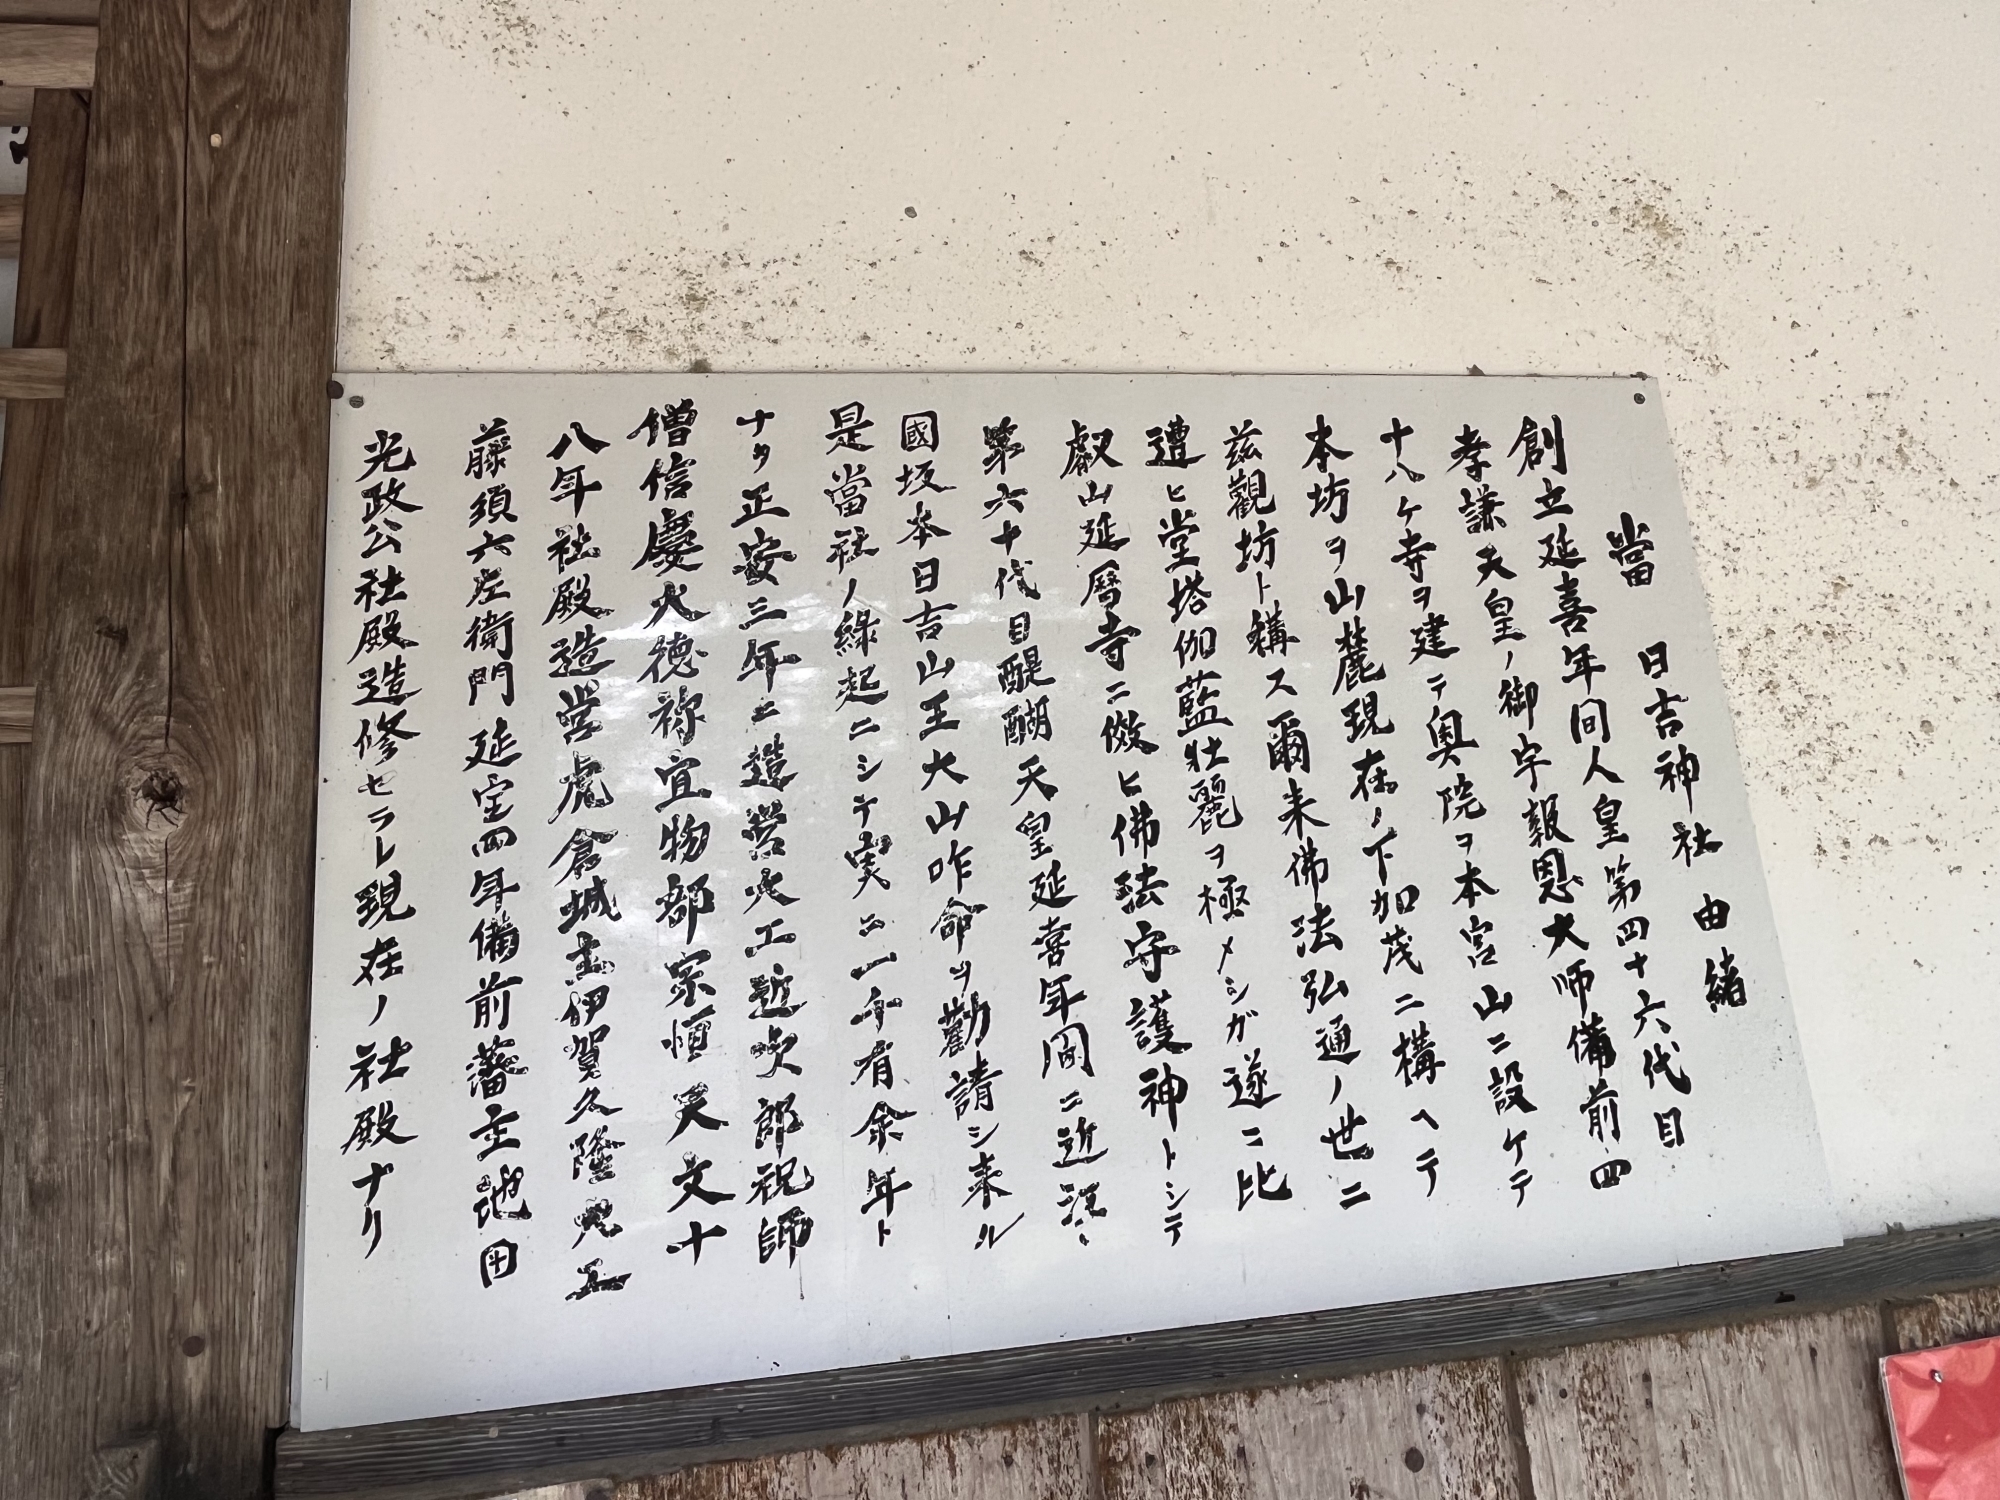 當 日吉神社由緒
創立延喜年間人皇第四十六代目
孝謙天皇ノ御宇報恩大師備前四
十八ケ寺ヲ建テ奥院ヲ本宮山ニ設ケテ
本坊ヲ山麓現在ノ下加茂ニ構ヘテ
茲觀坊ト稱ス爾来佛法弘通ノ世ニ
遭ヒ堂塔伽藍壮麗ヲ極メシガ遂ニ比
叡山延暦寺ニ傚ヒ佛法守護神トシテ
第六十代目醍醐天皇延喜年間ニ近江
國坂本日吉山王大山咋命ヲ勸請シ来ル
是當社ノ縁起ニシテ実ニ一千有余年ト
ナタ正安三年ニ造営大工近次郎祝師
僧信慶大徳祢宜物部宗恒天文十
八年社殿造営虎倉城主伊賀久隆大工
藤須六左衛門延宝四年備前藩主池田
光政公社殿造修セラレ現在ノ社殿ナリ